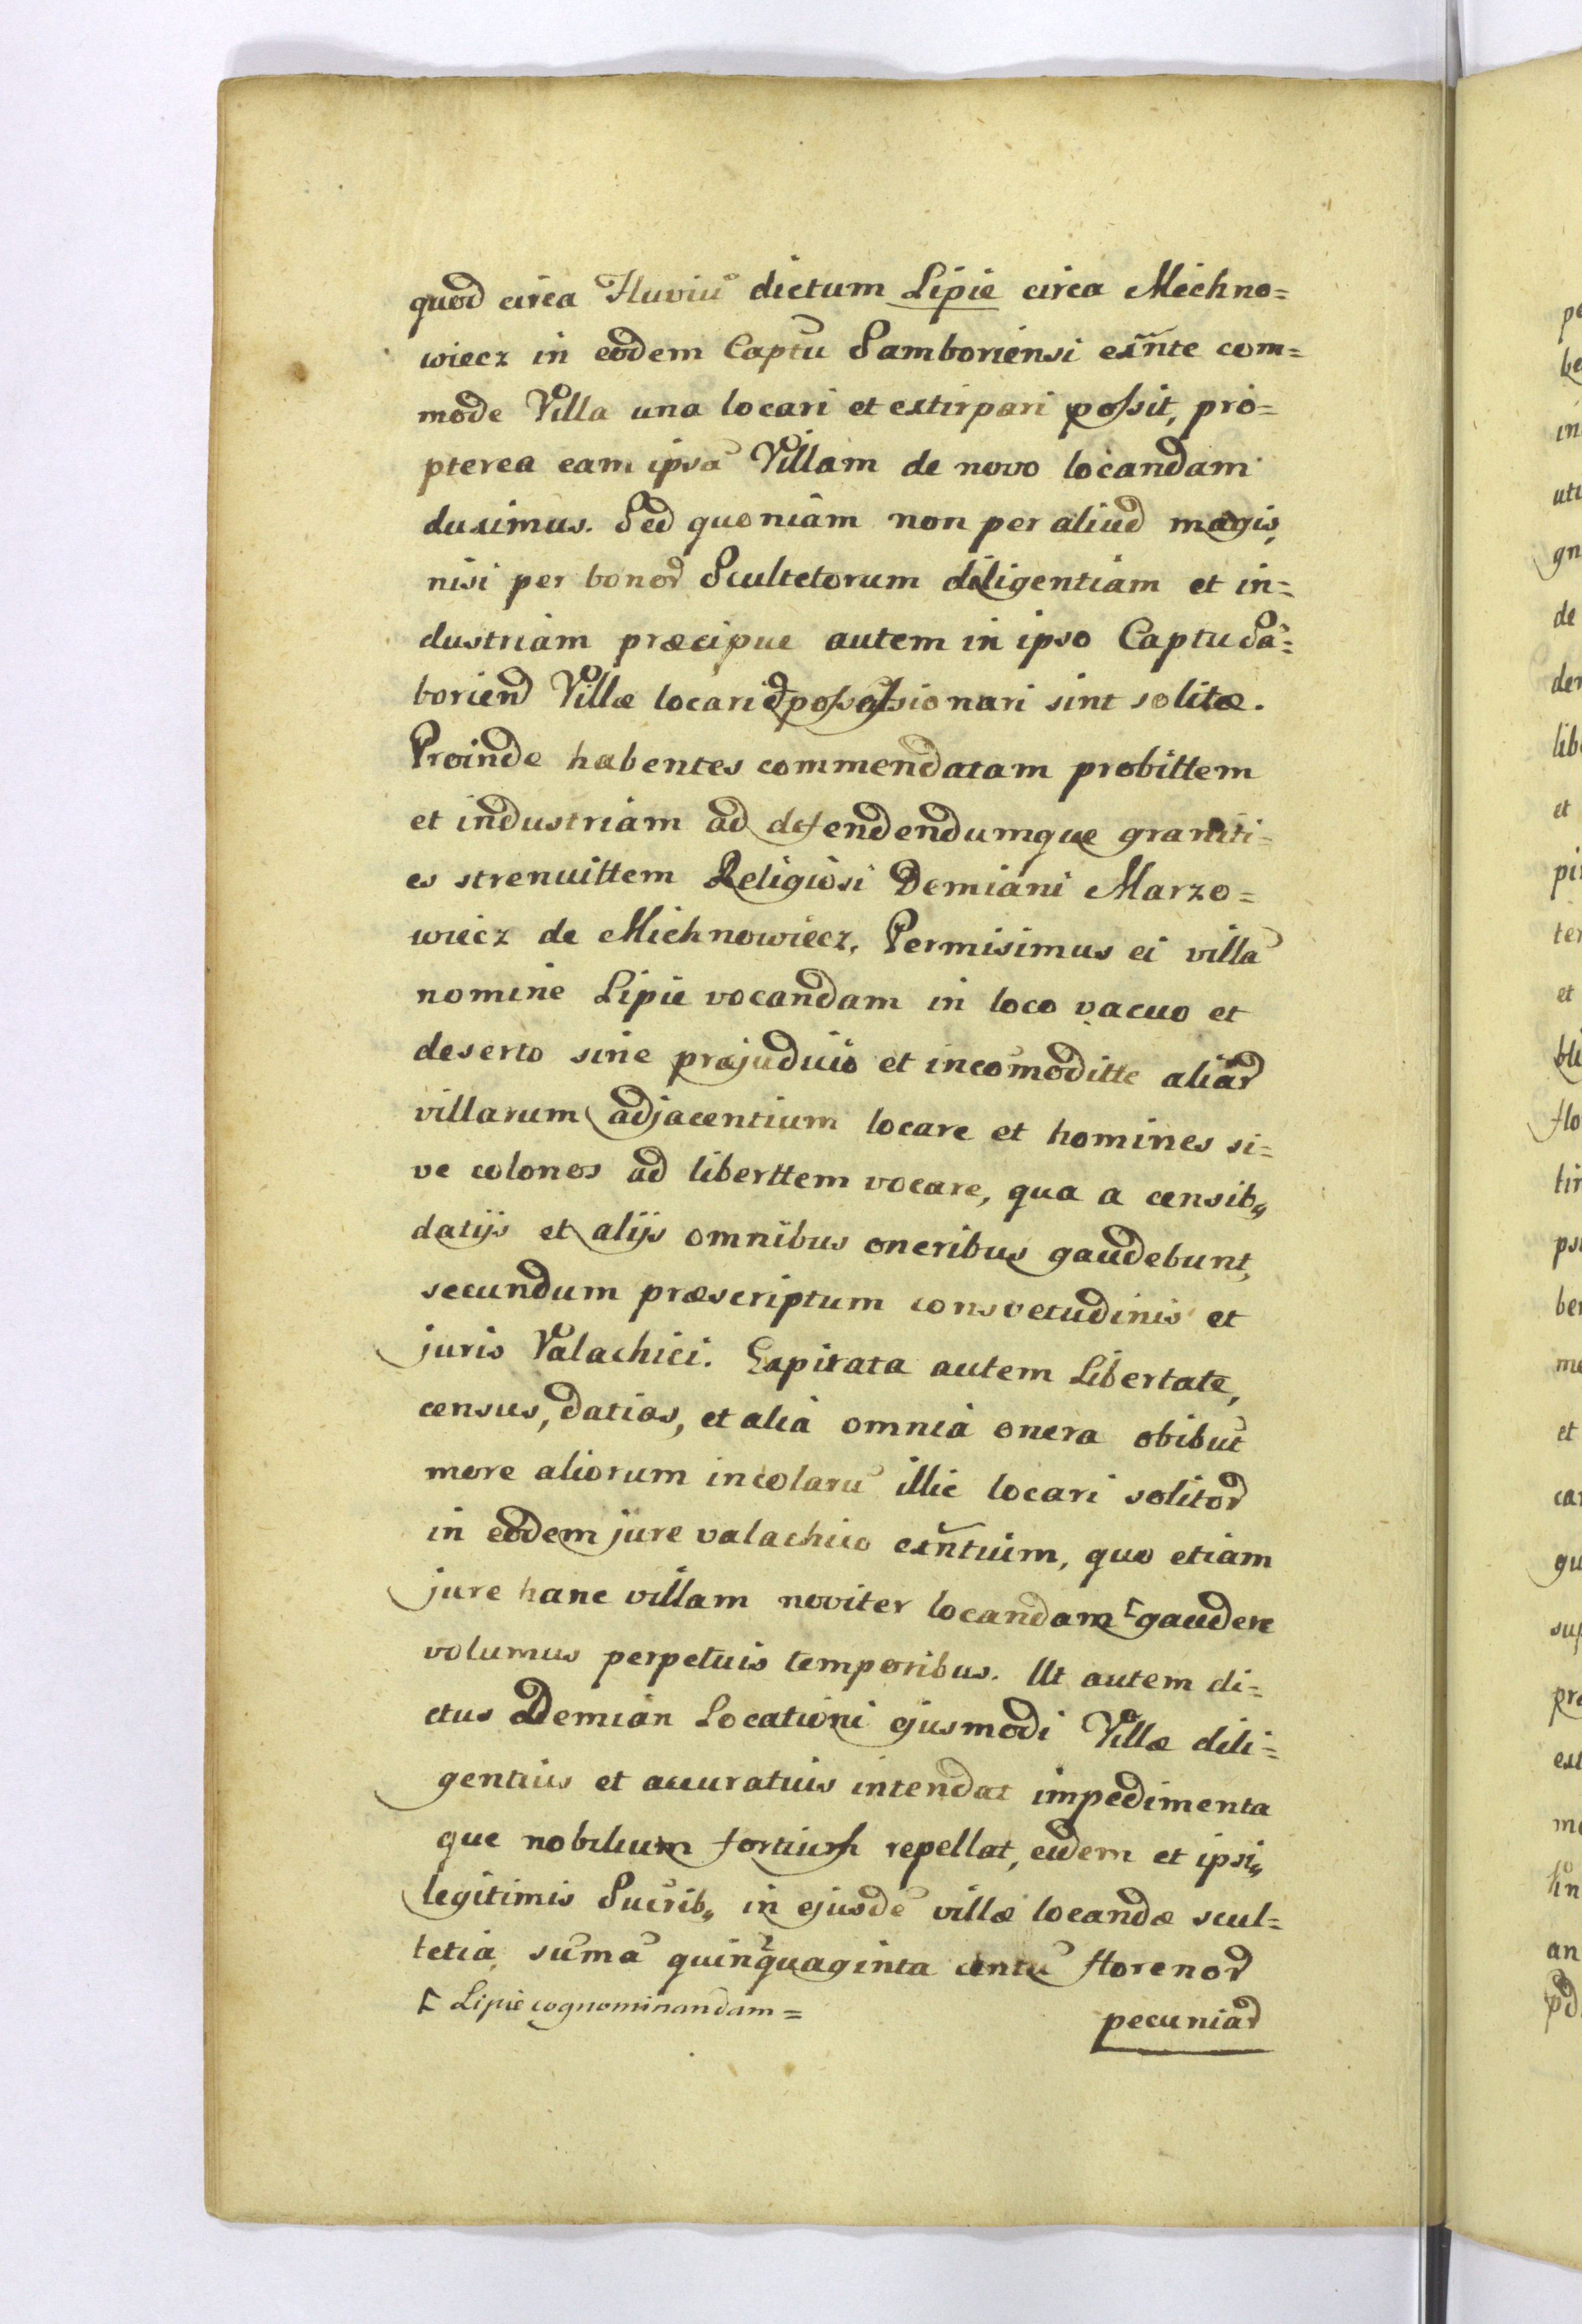 quod circa Fluviū dictum Lipie circa Michno=
wiecz in eodem Captū Samboriensi exñte com=
mode Villa una locari et extirpari possit, pro=
pterea eam ipsā Villam de novo locandam
duximus. Sed quoniam non per aliud magis,
nisi per bonoꝝ Scultetorum diligentiam et in=
dustriam præcipue autem in ipso Captu Sā=
borienꝭ Villæ locari et possessionari sint solitæ.
Proinde habentes commendatam probittem
et industriam ad defendendumque graniti=
es strenuittem Religiosi Demiani Marzo=
wiecz de Michnowiecz, Permisimus ei villā
nomine Lipie vocandam in loco vacuo et
deserto sine præjudicio et incōmoditte aliaꝝ
villarum adjacentium locare et homines si=
ve colonos ad liberttem vocare, qua a censibꝫ
datijs et alijs omnibus oneribus gaudebunt,
secundum præscriptum consvetudinis et
juris Valachici. Expirata autem Libertate,
census, datias, et alia omnia onera obibūt
more aliorum incolarū illic locari solitoꝝ
in eodem jure valachico exñtuim, quo etiam
jure hanc villam noviter locandam ⌈ gaudere
volumus perpetuis temporibus. Ut autem di=
ctus Demian Locationi ejusmodi Villæ dili=
gentius et accuratuis intendat impedimenta
que nobilium fortium repellat, eidem et ipsiꝫ
legitimis Sucribꝫ in ejusdē villæ locandæ scul=
tetia, sūmā quinquaginta centū florenoꝝ
⌈ Lipie cognominandam=
pecuniaꝝ